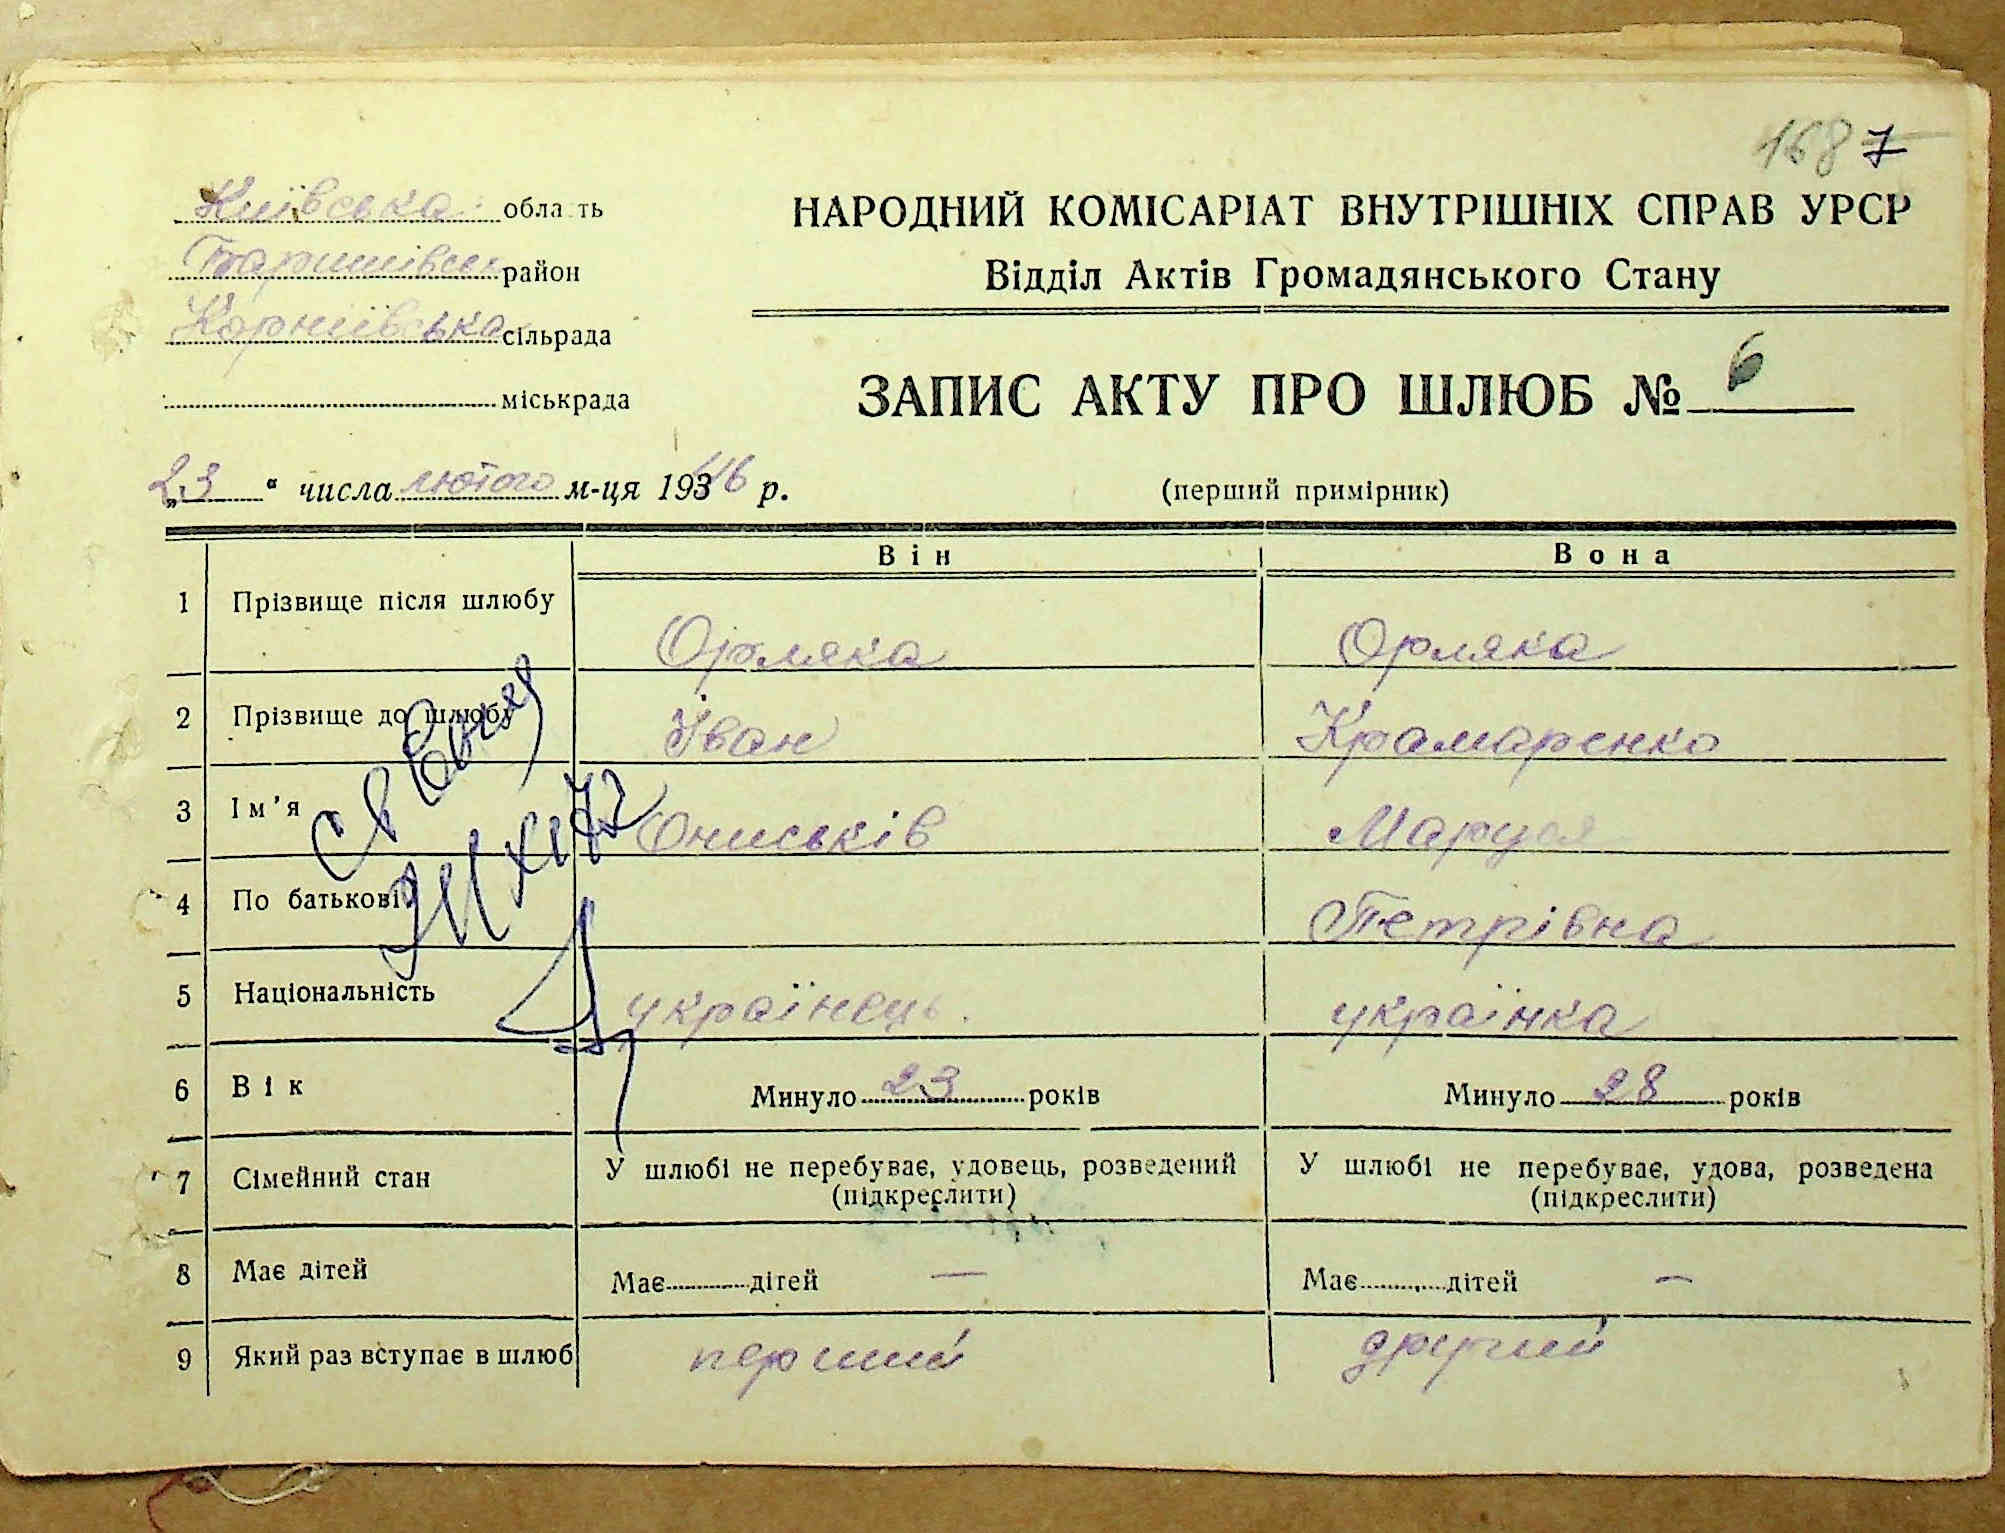 168 7
Київська область
Баришівськ район
Корніївська сільрада
міськрада
НАРОДНИЙ КОМІСАРІАТ ВНУТРІШНІХ СПРАВ УРСР
Відділ Актів Громадянського Стану
ЗАПИС АКТУ ПРО ШЛЮБ № 6
„23“ числа лютого м-ця 1946 р.
(перший примірник)
Він Вона
1 Прізвище після шлюбу Орляка Орляка
2 Прізвище до шлюбу Іван Крамаренко
3 Ім'я Ониськів Маруся
4 По батькові Петрівна
5 Національність українець. українка
6 Вік Минуло 23 років Минуло 28 років
7 Сімейний стан У шлюбі не перебуває, удовець, розведений (підкреслити) У шлюбі не перебуває, удова, розведена (підкреслити)
8 Має дітей Має дітей — Має дітей —
9 Який раз вступає в шлюб перший другий